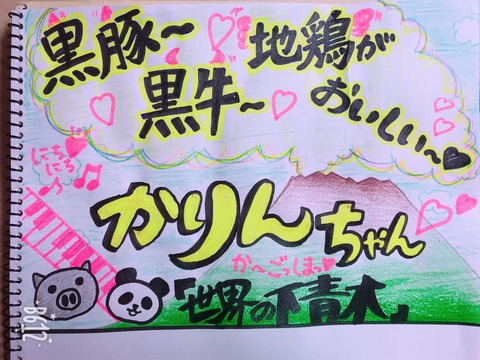 黒豚〜
地鶏が
黒牛〜
おいしい〜
にちにち
かりんちゃん
か〜ごっしまっ
「世界の下青木」
B612